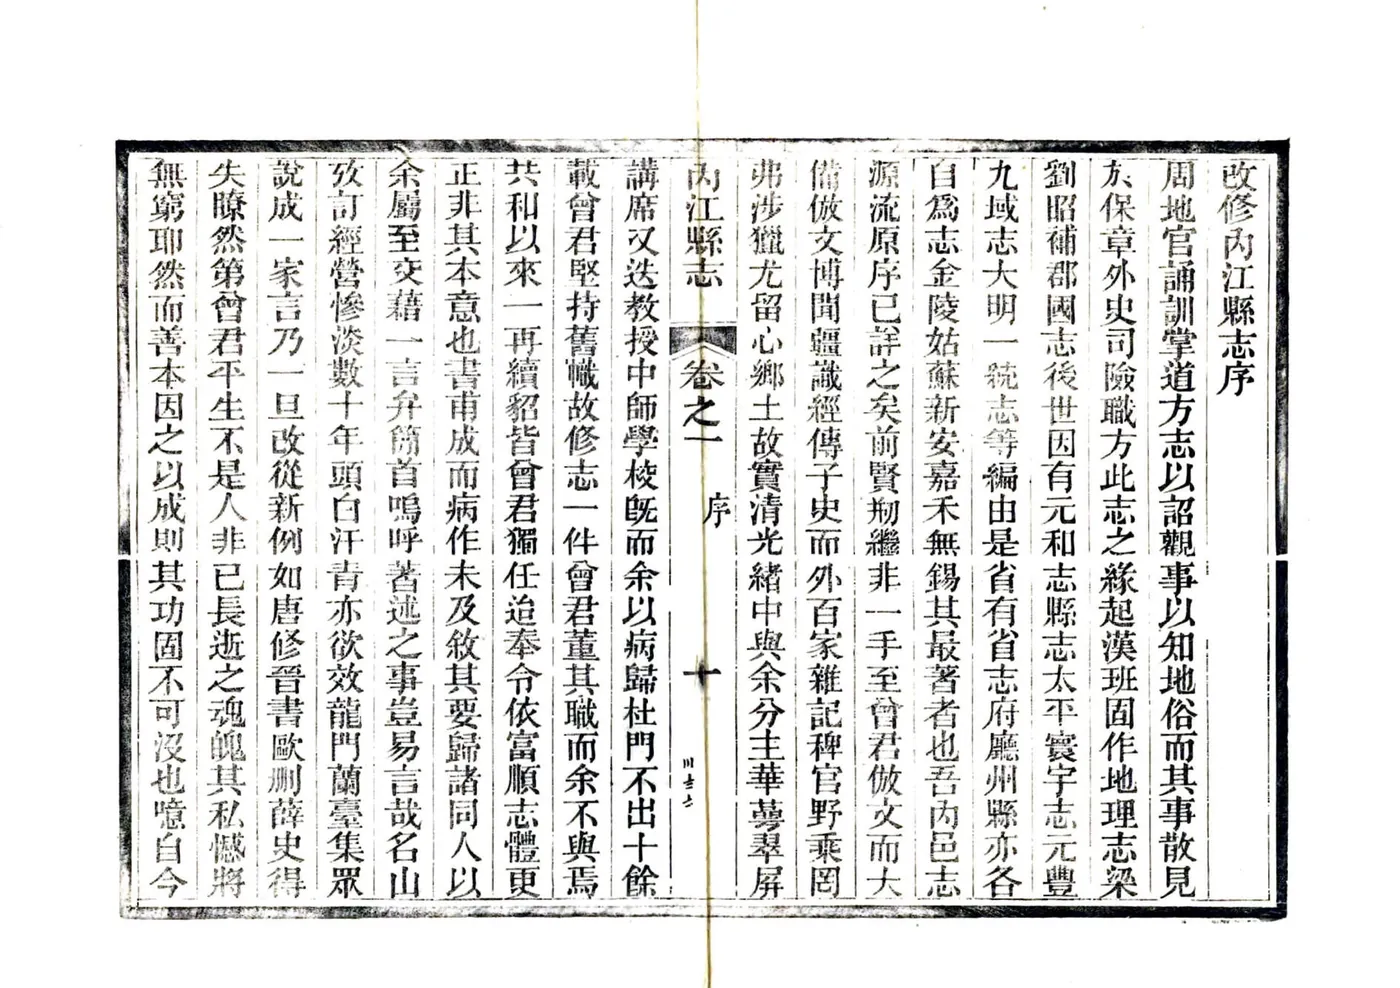 改修內江縣志序
周地官誦訓掌道方志以詔觀事以知地俗而其事散見
於保章外史司險職方此志之緣起漢班固作地理志梁
劉昭補郡國志後世因有元和志縣志太平寰宇志元豐
九域志大明一統志等編由是省有省志府廳州縣亦各
自爲志金陵姑蘇新安嘉禾無錫其最著者也吾內邑志
源流原序已詳之矣前賢剏繼非一手至曾君倣文而大
備倣文博聞疆識經傳子史而外百家雜記稗官野乘罔
弗涉獵尤留心鄉土故實清光緒中與余分主華蕚翠屏
內江縣志 卷之一 序 十
講席又迭教授中師學校旣而余以病歸杜門不出十餘
載曾君堅持舊幟故修志一件曾君董其職而余不與焉
共和以來一再續貂皆曾君獨任迨奉令依富順志體更
正非其本意也書甫成而病作未及敘其要歸諸同人以
余屬至交藉一言弁簡首嗚呼著述之事豈易言哉名山
攷訂經營慘淡數十年頭白汗青亦欲效龍門蘭臺集眾
說成一家言乃一旦改從新例如唐修晉書歐删薛史得
失瞭然第曾君平生不是人非已長逝之魂魄其私憾將
無窮耶然而善本因之以成則其功固不可沒也噫自今